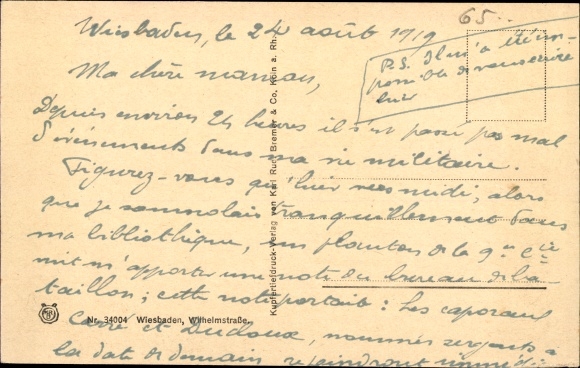 65..
Wiesbaden, le 24 août 1919
P.S. Il m'a été im-
possible de vous écrire
hier
Ma chère maman,
Depuis environ 24 heures il s'est passé pas mal
d'événements dans ma vie militaire.
Figurez-vous qu'hier vers midi, alors
que je somnolais tranquillement dans
ma bibliothèque, un planton de la 9e Cie
vint m'apporter une note du bureau du ba-
taillon; cette note portait: Les caporaux
Carré et Dudoux, nommés sergents à
la date de demain rejoindront
Kupfertiefdruck-Verlag von Karl Rud. Bremer & Co, Köln a. Rh.
Nr. 34004 Wiesbaden, Wilhelmstraße.